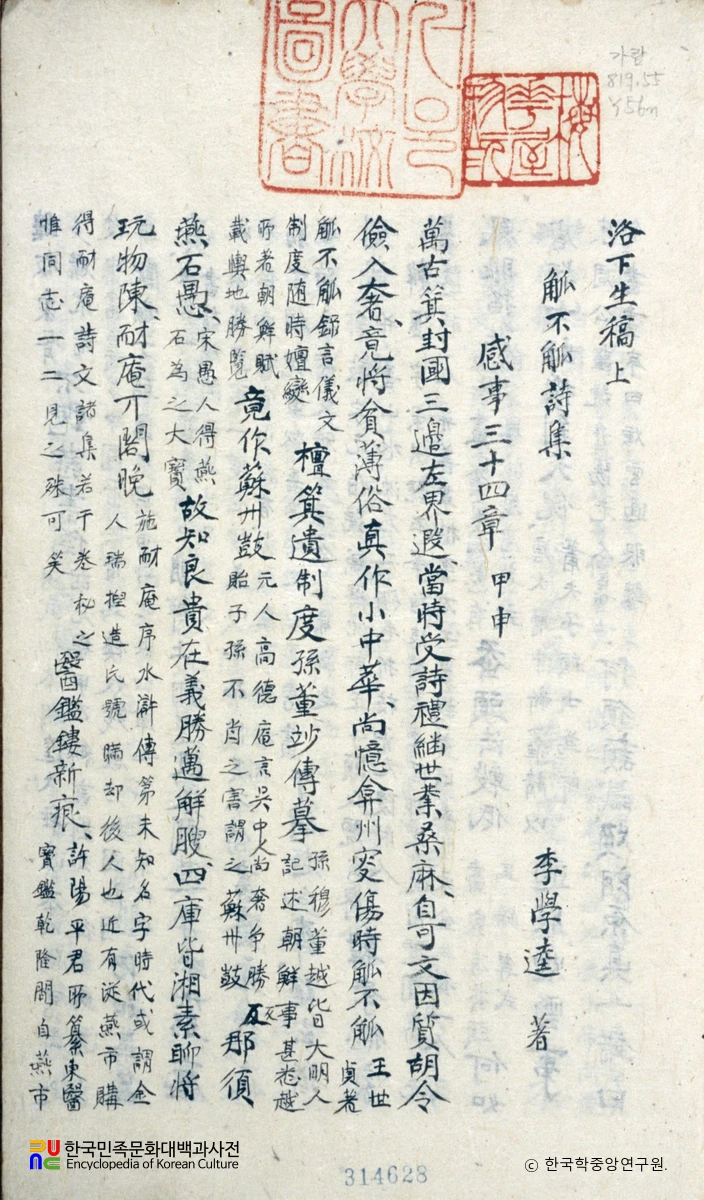 洛下生稿上
觚不觚詩集
李學逵 著
感事三十四章 甲申
萬古箕封國三邊左界遐當時受詩禮繼世業桑麻自可文因質胡令
儉入奢竟將貧薄俗真作小中華尚憶弇州叟傷時觚不觚王世貞著
觚不觚錄言儀文
制度随時嬗變
檀箕遺制度孫董竗傳摹
孫穆董越皆大明人
記述朝鮮事甚悉越
所著朝鮮賦
載輿地勝覽
竟作蘇州鼓
元人高德庵言吳中人尚奢争勝
貽子孫不肖之害謂之蘇州鼓
那須
燕石愚
宋愚人得燕
石為之大寶
故知良貴在義勝邁鮮腴四庫皆湘素聊將
玩物陳耐庵丌閣晩
施耐庵序水滸傳第未知名字時代或謂金
人瑞捏造氏號瞞却後人也近有從燕市購
得耐庵詩文諸集若干卷秘之
惟同志一二見之殊可笑
醫鑑鏤新痕
許陽平君所纂東醫
寶鑑乾隆間自燕市
가람
819.55
Y56n
314628
한국민족문화대백과사전
Encyclopedia of Korean Culture
© 한국학중앙연구원.